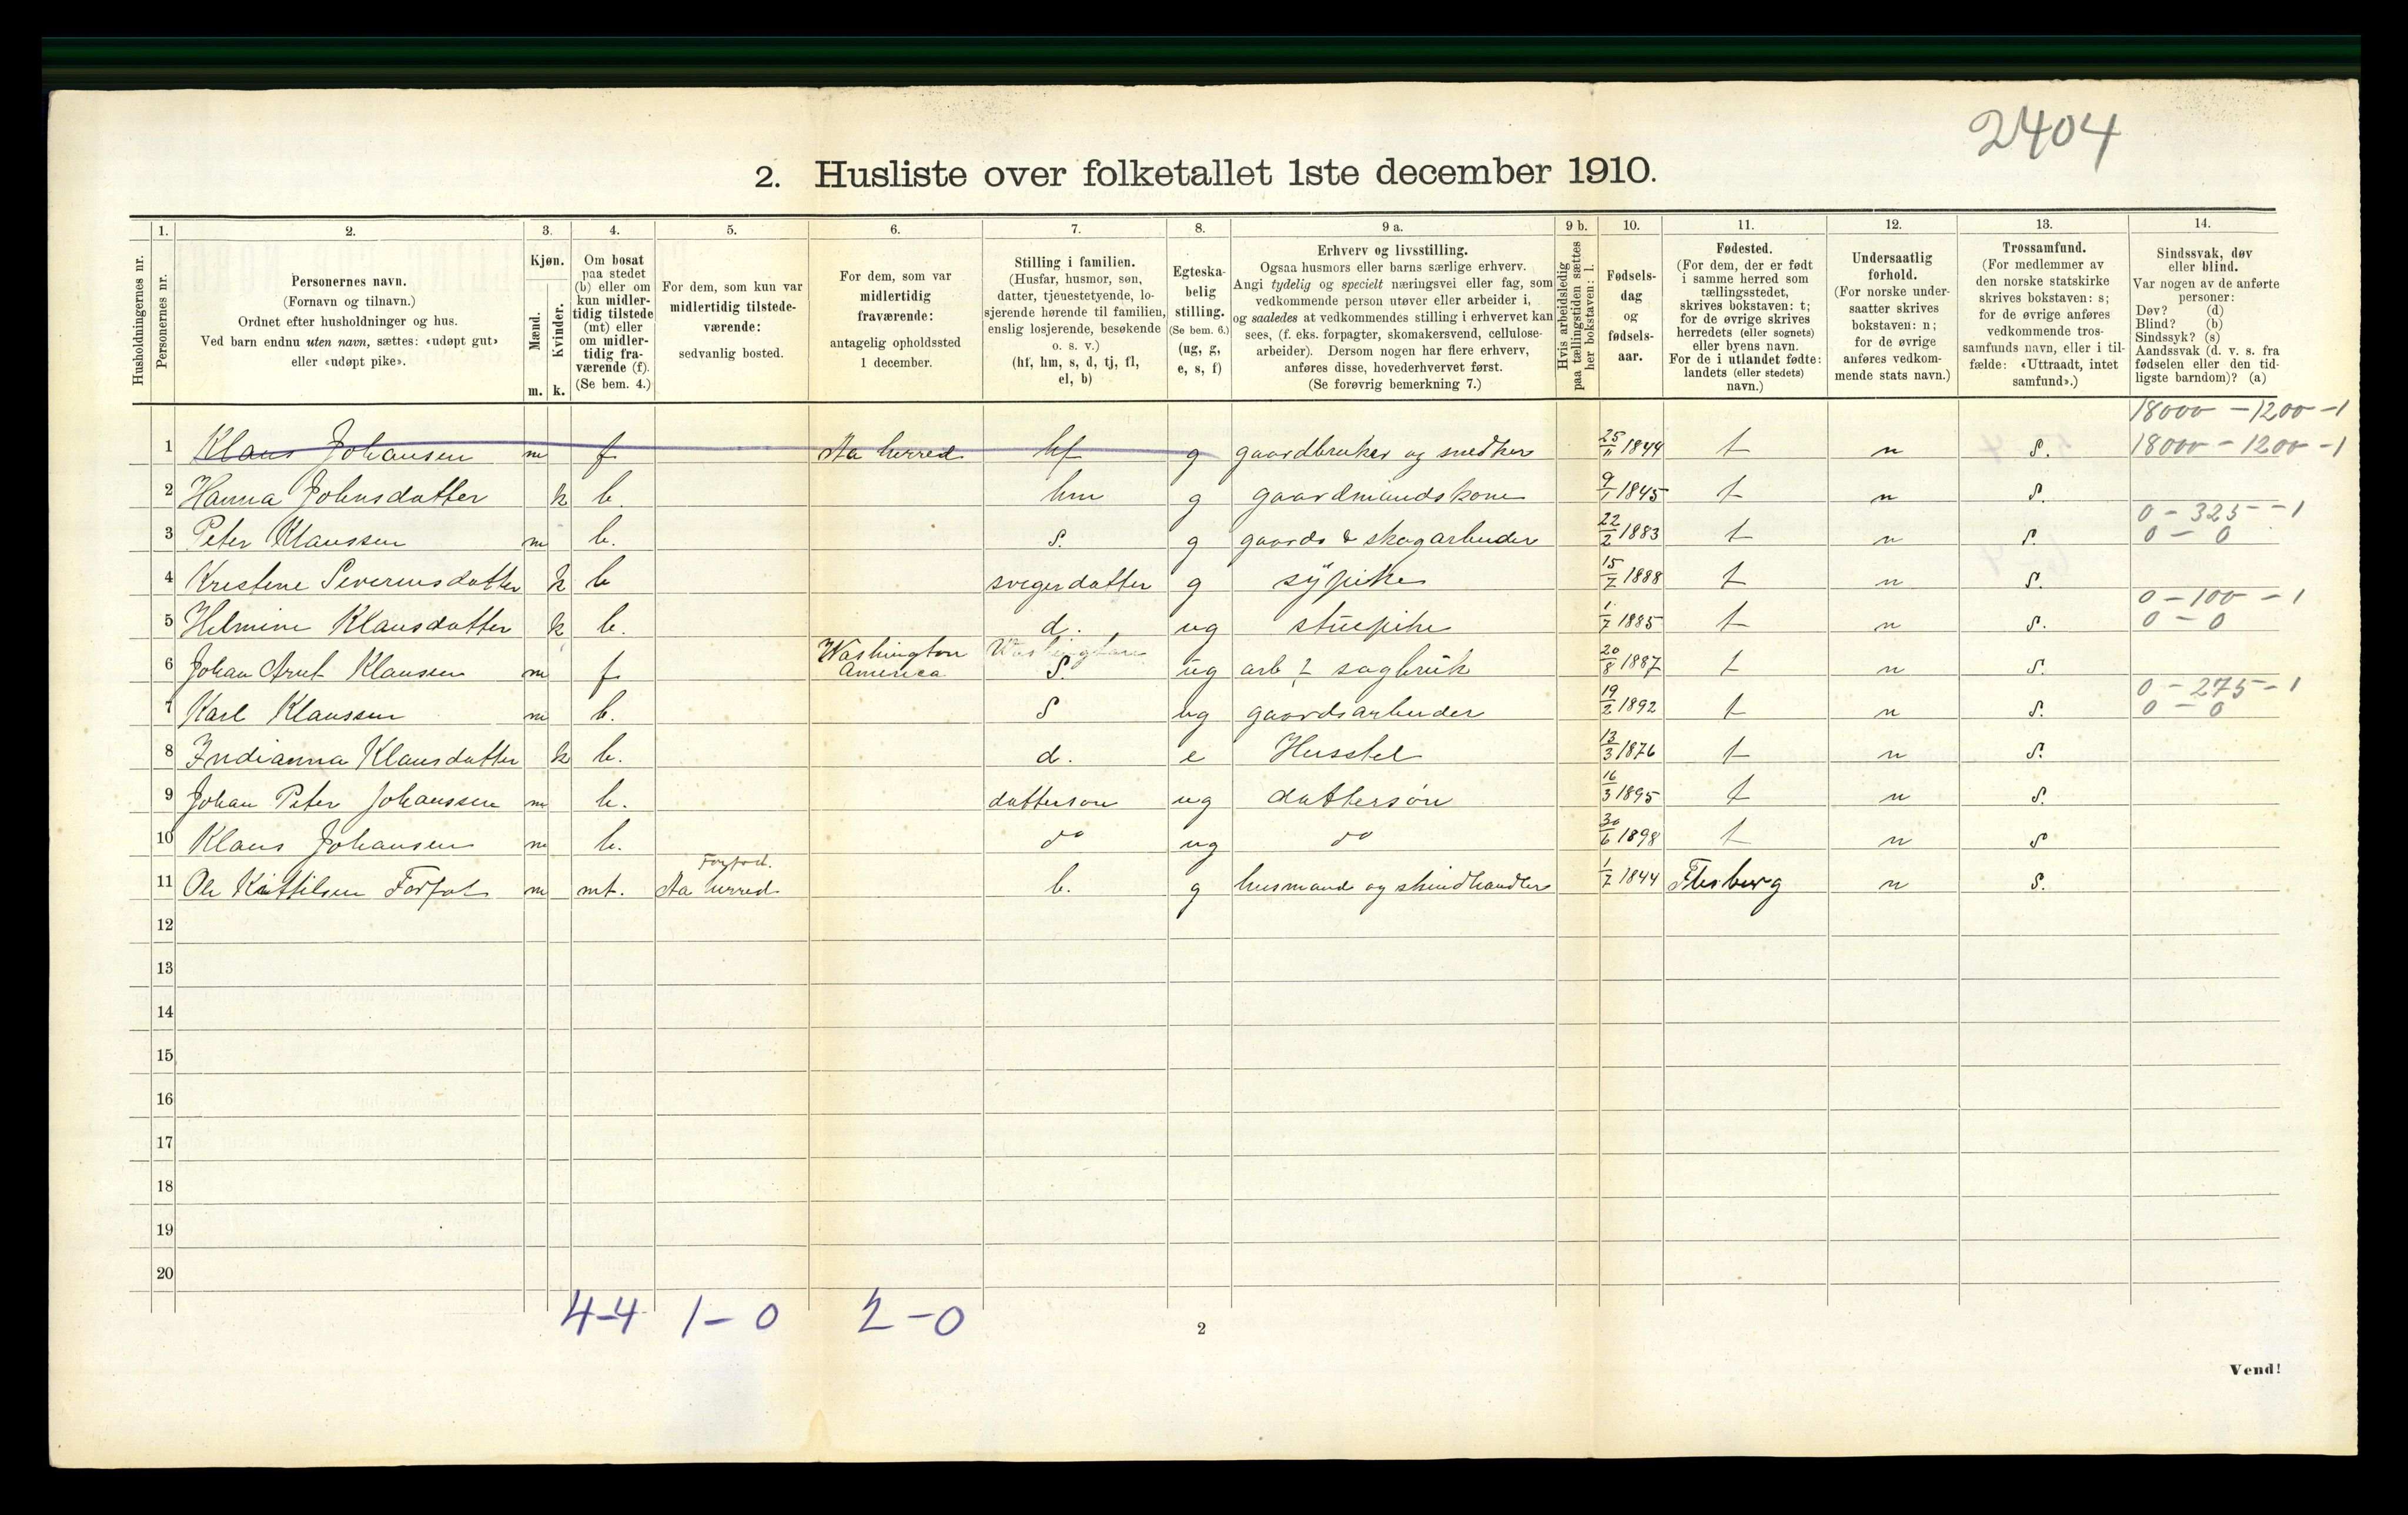 2404
2. Husliste over folketallet 1ste december 1910.
Husholdningernes nr.
1.
Personernes nr.
2.
Personernes navn.
(Fornavn og tilnavn.)
Ordnet efter husholdninger og hus.
Ved barn endnu uten navn, sættes: «udøpt gut»
eller «udøpt pike».
3.
Kjøn.
Mænd.
Kvinder.
m. k.
4.
Om bosat
paa stedet
(b) eller om
kun midler-
tidig tilstede
(mt) eller
om midler-
tidig fra-
værende (f).
(Se bem. 4.)
5.
For dem, som kun var
midlertidig tilstede-
værende:
sedvanlig bosted.
6.
For dem, som var
midlertidig
fraværende:
antagelig opholdssted
1 december.
7.
Stilling i familien.
(Husfar, husmor, søn,
datter, tjenestetyende, lo-
sjerende hørende til familien,
enslig losjerende, besøkende
o. s. v.)
(hf, hm, s, d, tj, fl,
el, b)
8.
Egteska-
belig
stilling.
(Se bem. 6.)
(ug, g,
e, s, f)
9 a.
Erhverv og livsstilling.
Ogsaa husmors eller barns særlige erhverv.
Angi tydelig og specielt næringsvei eller fag, som
vedkommende person utøver eller arbeider i,
og saaledes at vedkommendes stilling i erhvervet kan
sees, (f. eks. forpagter, skomakersvend, cellulose-
arbeider). Dersom nogen har flere erhverv,
anføres disse, hovederhvervet først.
(Se forøvrig bemerkning 7.)
9 b.
Hvis arbeidsledig
paa tællingstiden sættes
her bokstaven: l.
10.
Fødsels-
dag
og
fødsels-
aar.
11.
Fødested.
(For dem, der er født
i samme herred som
tællingsstedet,
skrives bokstaven: t;
for de øvrige skrives
herredets (eller sognets)
eller byens navn.
For de i utlandet fødte:
landets (eller stedets)
navn.)
12.
Undersaatlig
forhold.
(For norske under-
saatter skrives
bokstaven: n;
for de øvrige
anføres vedkom-
mende stats navn.)
13.
Trossamfund.
(For medlemmer av
den norske statskirke
skrives bokstaven: s;
for de øvrige anføres
vedkommende tros-
samfunds navn, eller i til-
fælde: «Uttraadt, intet
samfund».)
14.
Sindssvak, døv
eller blind.
Var nogen av de anførte
personer:
Døv? (d)
Blind? (b)
Sindssyk? (s)
Aandssvak (d. v. s. fra
fødselen eller den tid-
ligste barndom)? (a)
18000 - 1200 - 1
1 Klaus Johansen m f herred hf g gaardbruker og snedker 25/11 1844 t n s. 18000 - 1200 - 1
2 Hanna Johnsdatter k b. hm g gaardmandskone 9/1 1845 t n s.
0 - 325 - 1
3 Peter Klaussen m b. s. g gaards & skogarbeider 22/2 1883 t n s. 0 - 0
4 Kristine Severinsdatter k b svigerdatter g sypike 15/7 1888 t n s.
0 - 100 - 1
5 Helmine Klausdatter k b. d. ug stuepike 1/7 1885 t n s. 0 - 0
Washington Washington
6 Johan Arnt Klausen m f America s. ug arb sagbruk 20/8 1887 t n s.
0 - 275 - 1
7 Karl Klaussen m b. s ug gaardsarbeider 19/2 1892 t n s. 0 - 0
8 Indianna Klausdatter k b. d. e Husstel 13/3 1876 t n s.
9 Johan Peter Johanssen m b. datterson ug dattersøn 16/3 1895 t n s.
10 Klaus Johansen m b. do ug do 30/6 1898 t n s
11 Ole Kittilsen m mt. herred b. g husmand og skindhandler 1/7 1844 Flesberg n s.
12
13
14
15
16
17
18
19
20
4-4 1-0 2-0
2
Vend!